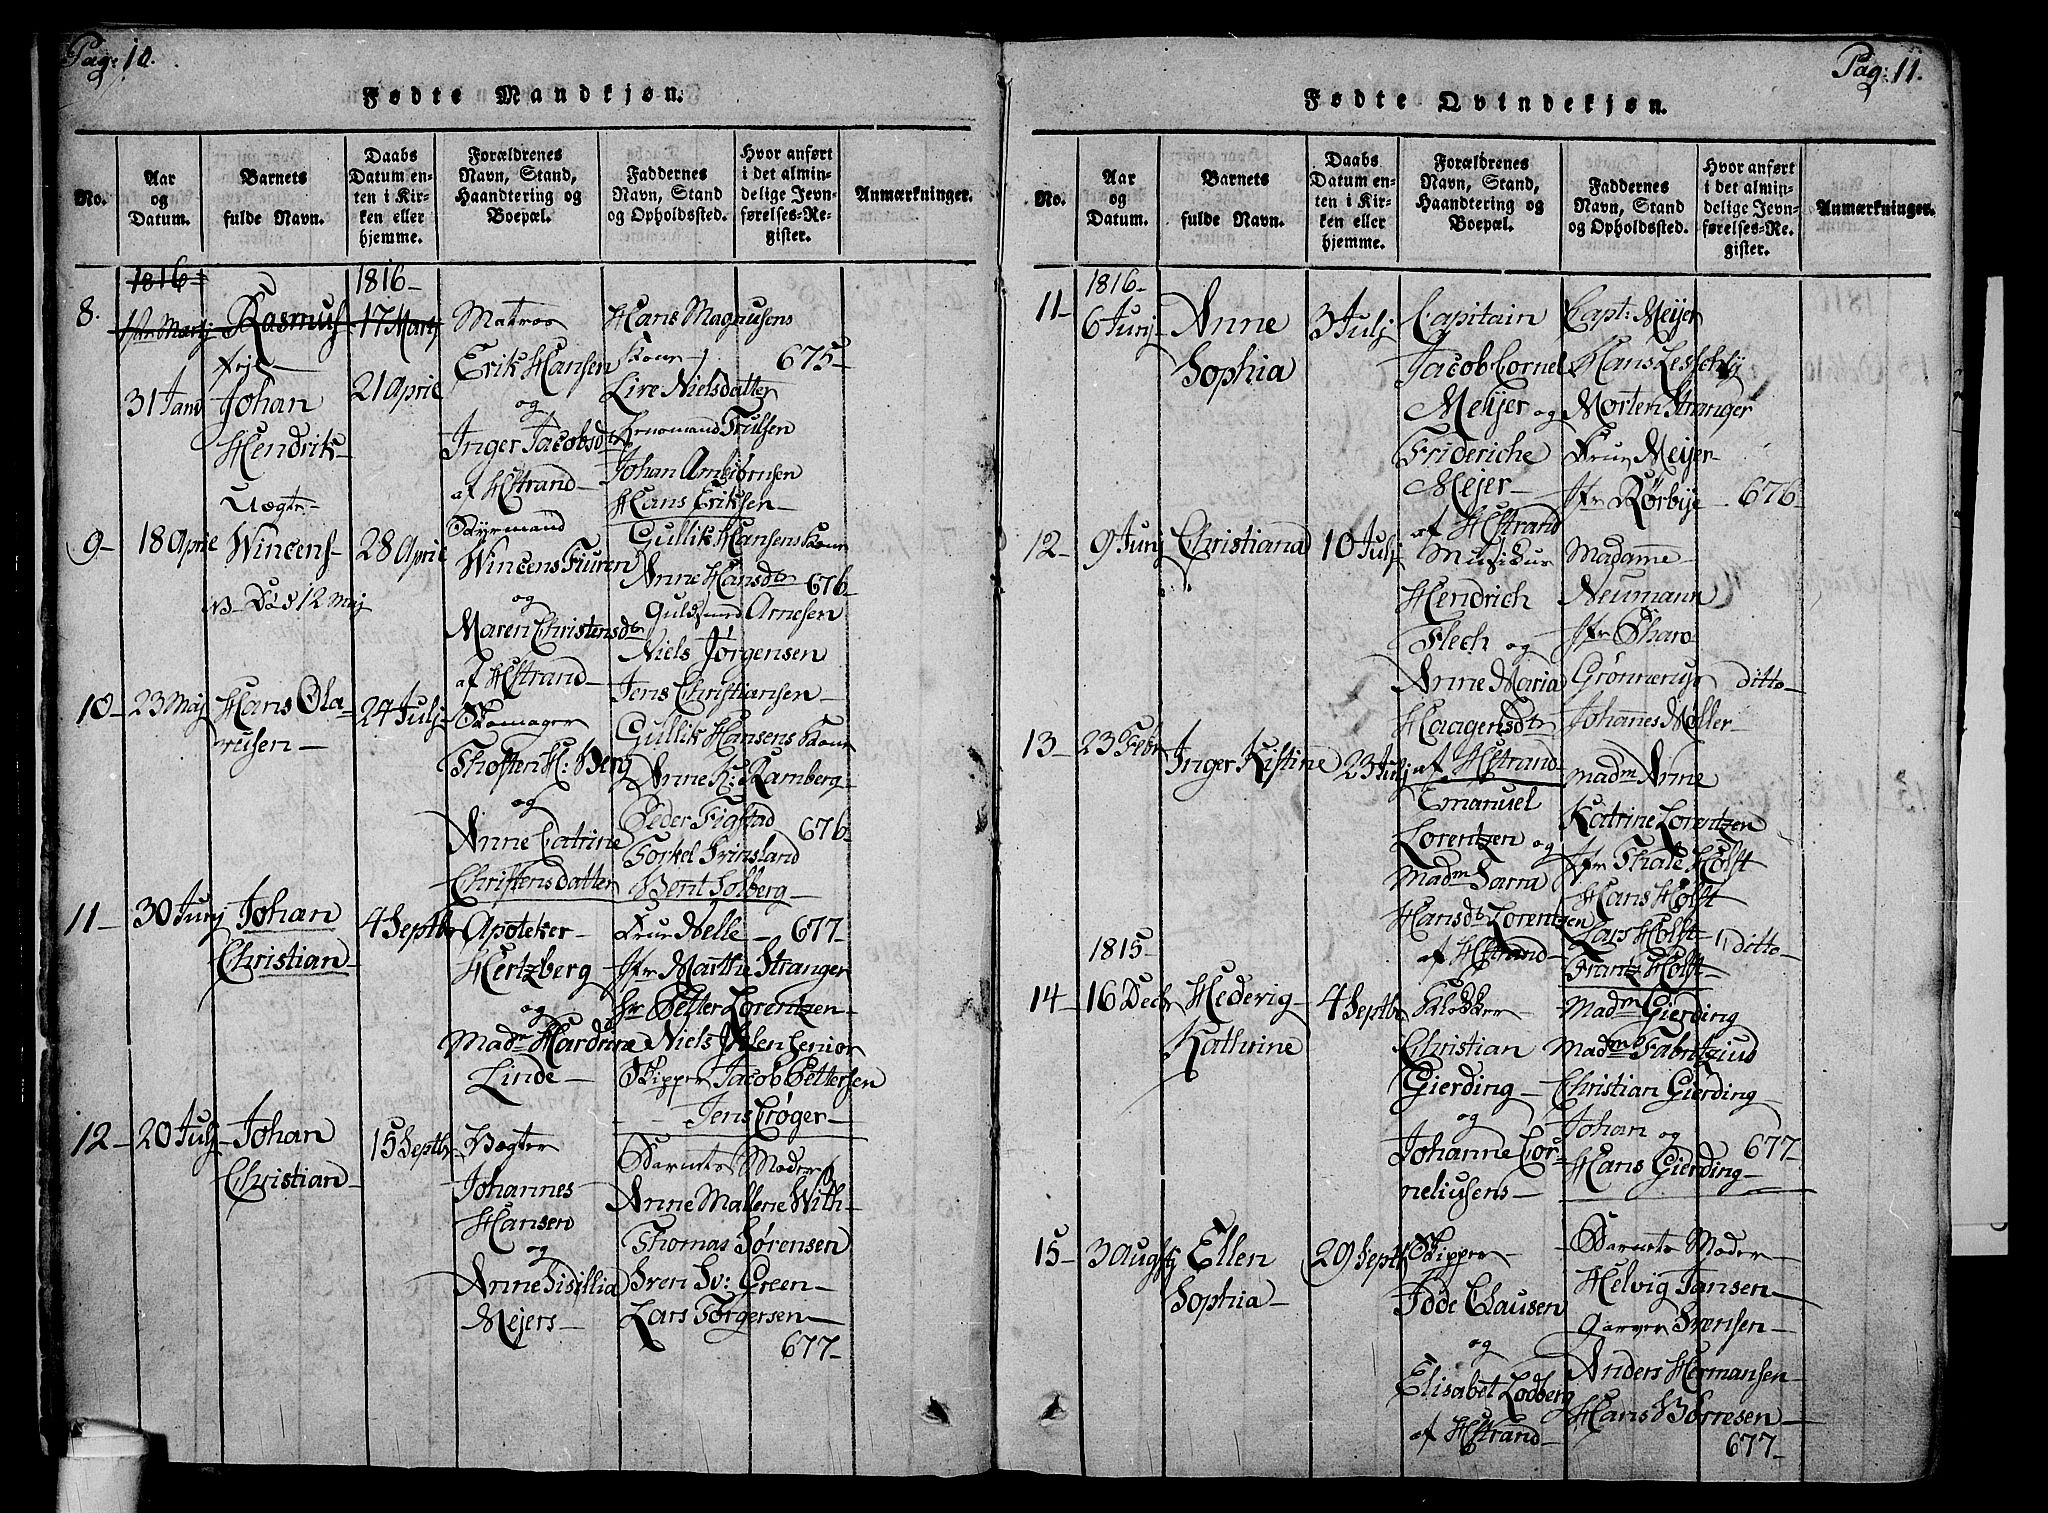 Pag: 10.
Fødte Mandkjøn.
No.
Aar
og
Datum.
Barnets
fulde Navn.
Daabs
Datum en-
ten i Kir-
ken eller
hjemme.
Forældrenes
Navn, Stand,
Haandtering og
Boepæl.
Faddernes
Navn, Stand
og Opholdssted.
Hvor anført
i det almin-
delige Jevn-
førelses-Re-
gister.
Anmærkninger.
8.
1816
31 Janr
Rasmus
Johan
Hendrik
Uægte
1816
17 Martj
21 April
Matros
Erik Hansen
og
Inger Jacobsdtr
af HStrand
Hans Magnusens
Kone
Live Nielsdatter
Trulsen
Johan Ambiørnsen
Hans Eriksen
675
9
18 April
Wincens
NB Død 12 Maj
28 April
Styrmand
Wincens Fiuren
og
Maren Christensdtr
af HStrand
Gullik Hansens Kone
Anne Hansdtr
Guldsmed Arnesen
Niels Jørgensen
Jens Christiansen
676
10
23 Maj
Hans Ola-
rusen
24 Julj
Skomager
Thosten H: Berg
og
Anne Catrine
Christensdatter
Gullik Hansens Kone
Anne K: Ramberg
Peder Figstad
Torkel Frinsland
Bent Solberg
676
11
30 Junj
Johan
Christian
4 Septbr
Apoteker
Hertzberg
og
Madm Hardine
Linde
Frue Nelle
Jfr Marthe Stranger
Hr Petter Lorentzen
Niels Senior
Skipper Jacob Pettersen
Jens Crøger
677
12
20 Julj
Johan
Christian
15 Septbr
Vægter
Johannes
Hansen
og
Anne Sisillia
Mejers
Barnets Moder
Anne Mallene With
Thomas Sørensen
Sven Sv: Green
Lars Torgersen
677
Pag: 11.
Fødte Qvindekjøn.
No.
Aar
og
Datum.
Barnets
fulde Navn.
Daabs
Datum en-
ten i Kir-
ken eller
hjemme.
Forældrenes
Navn, Stand,
Haandtering og
Boepæl.
Faddernes
Navn, Stand
og Opholdssted.
Hvor anført
i det almin-
delige Jevn-
førelses-Re-
gister.
Anmærkninger.
11
1816
6 Junj
Anne
Sophia
3 Julj
Capitain
Jacob Cornel
Mejer og
Frideriche
Mejer
af HStrand
Capt: Meijer
Hans Lesschly
Morten Stranger
Frue Meijer
Jfr Rørbye
676
12
9 Junj
Christiana
10 Julj
Musikus
Hendrich
Flech og
Anne Maria
Haagensdtr
af HStrand
Madamme
Neumann
Jfr Pharo
Grønnerup
Johannes Møller
ditto
13
23 Febr
Inger Kistine
23 Julj
Emanuel
Lorentzen og
Madm Sarra
Hansdtr Lorentzen
af HStrand
Madm Anne
Katrine Lorentzen
Jfr Thale Holst
Hans Holst
Lars Holst
Frantz Holst
ditto
14
1815
16 Decbr
Hedevig
Kathrine
4 Septbr
Klokker
Christian
Gierding
og
Johanne Cor-
neliusens
Madm Gierding
Madm Fabritzius
Christian Gierding
Johan og
Hans Gierding
677
15
3 Augstj
Ellen
Sophia
29 Septbr
Skipper
Jdde Clausen
og
Elisabet Lodberg
af HStrand
Barnets Moder
Helvig Jansen
Garver Svensen
Anders Hermansen
Hans Børresen
677